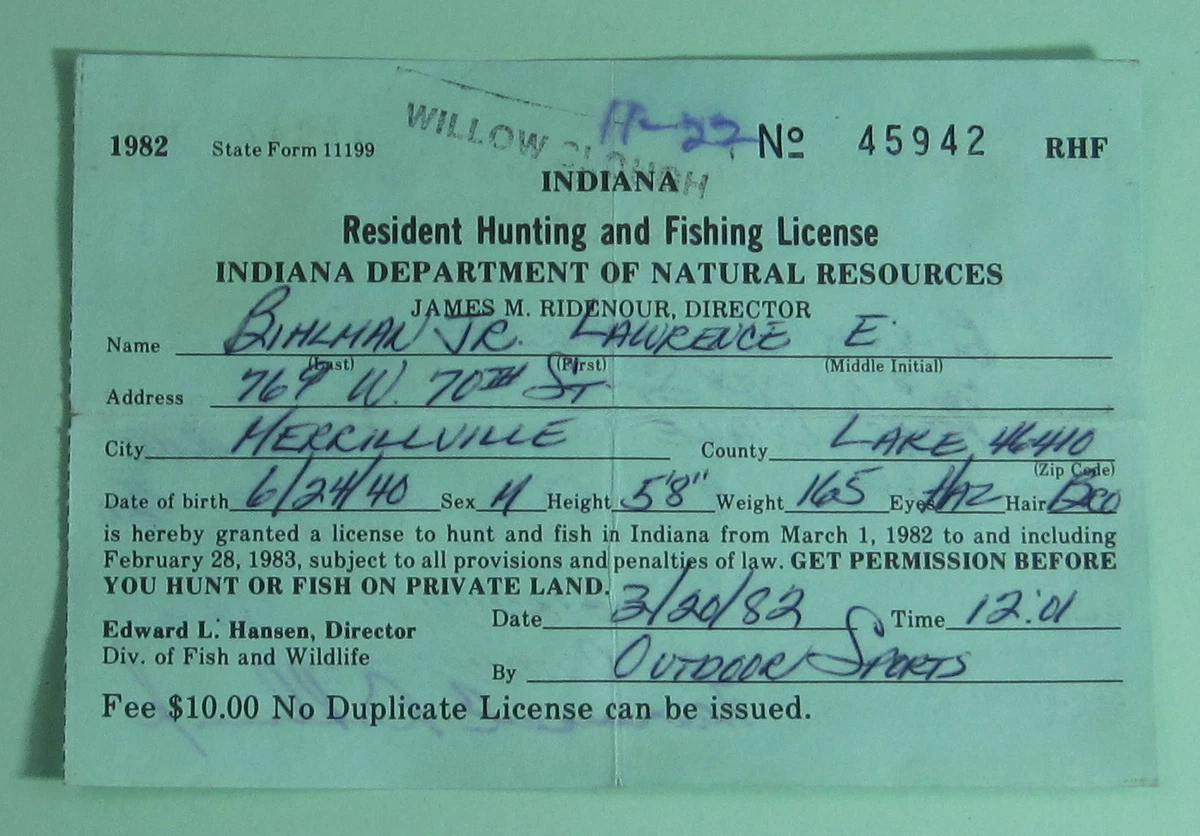 WILLOW SLOUGH
11-22
1982 State Form 11199 Nº 45942 RHF
INDIANA
Resident Hunting and Fishing License
INDIANA DEPARTMENT OF NATURAL RESOURCES
JAMES M. RIDENOUR, DIRECTOR
Name BIHLMAN JR. LAWRENCE E.
(Last) (First) (Middle Initial)
Address 769 W. 70TH ST
City MERRILLVILLE County LAKE 46410
(Zip Code)
Date of birth 6/24/40 Sex M Height 5'8" Weight 165 Eyes HAZ Hair
is hereby granted a license to hunt and fish in Indiana from March 1, 1982 to and including
February 28, 1983, subject to all provisions and penalties of law. GET PERMISSION BEFORE
YOU HUNT OR FISH ON PRIVATE LAND.
Date 3/20/82 Time 12:01
Edward L. Hansen, Director
Div. of Fish and Wildlife
By OUTDOOR SPORTS
Fee $10.00 No Duplicate License can be issued.